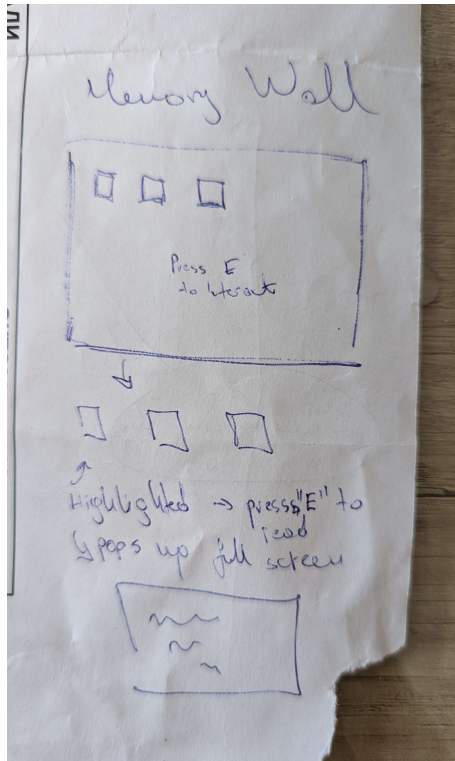 Memory Wall
Press E
to Interact
Highlighted → press "E" to
read
↳ pops up full screen